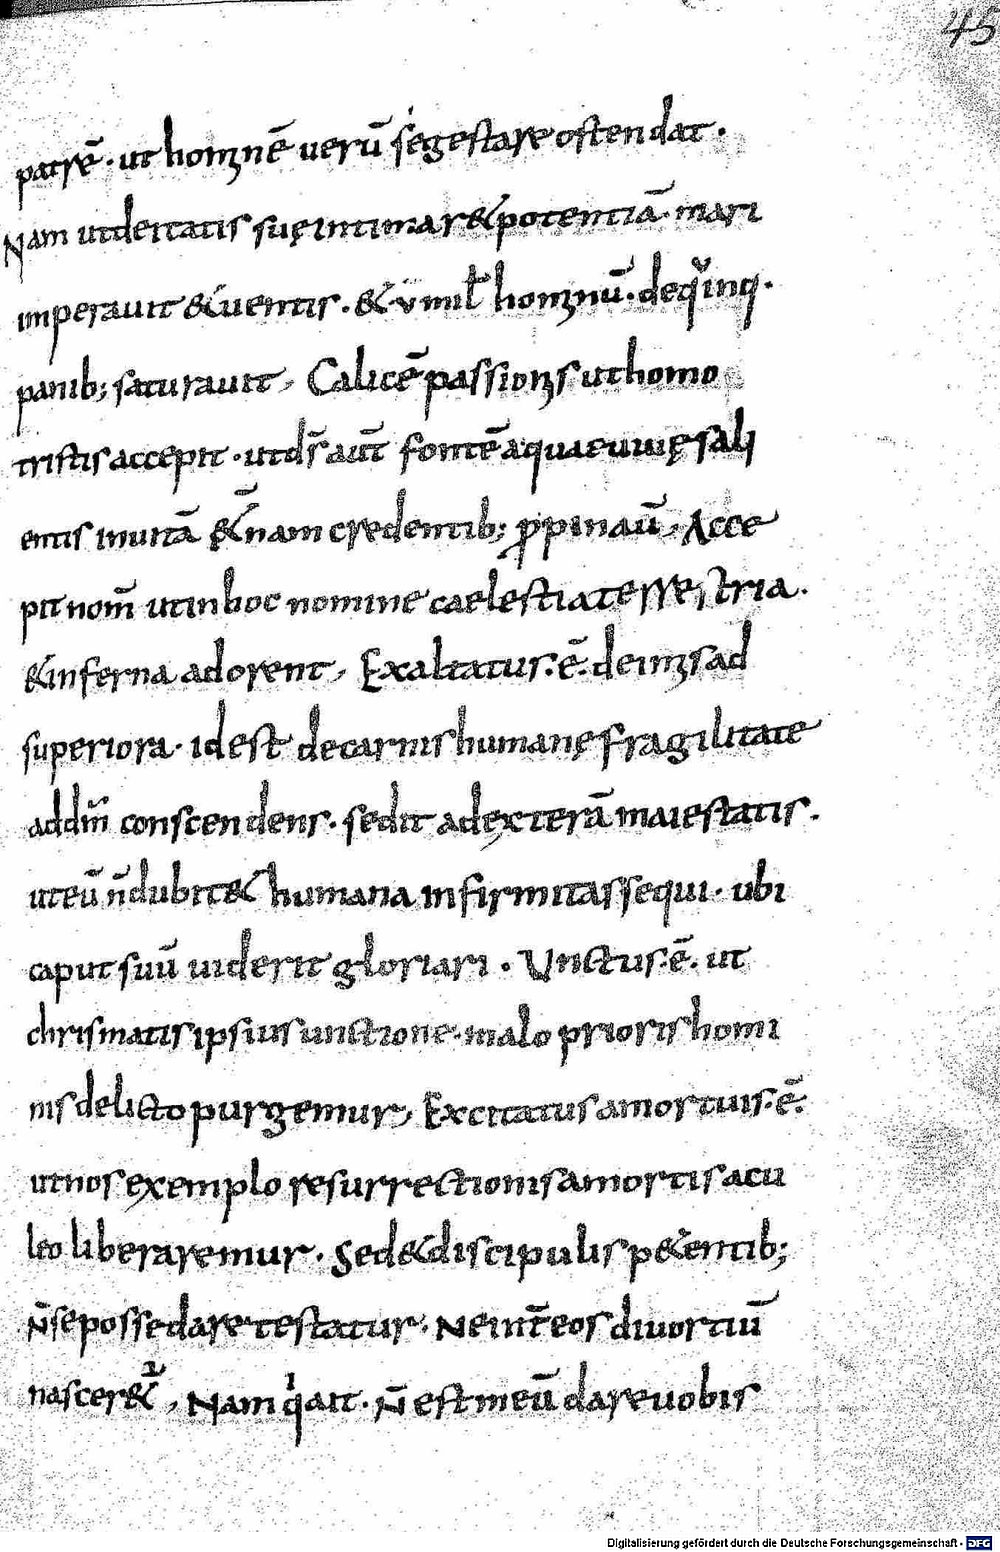 45
patrē · ut hominē uerū se gestare ostendat ·
Nam ut deitatis suę intimar& potentiā mari
imperauit & uentis · & v mil̄ hominū · de q̊inq·
panib; saturauit, Calicē passionis ut homo
tristis accepit · ut dr̄ aut̄ fontē aquae uiuę sali
entis in uitā &̄nam credentib; ꝓpinauit, Acce
pit nom̄ ut in hoc nomine caelestia terrestria ·
& inferna adorent, Exaltatus · ē · de imis ad
superiora · id est de carnis humanę fragilitate
ad dm̄ conscendens · sedit ad exterā maiestatis ·
ut eū n̄ dubit& humana infirmitas sequi · ubi
caput suū uiderit gloriari · Unctus · ē · ut
chrismatis ipsius unctione · malo prioris homi
nis delicto purgemur, Excitatus a mortuis · ē ·
ut nos exemplo resurrectionis a mortis acu
leo liberaremur · Sed & discipulis p&entib;
n̄ se posse dare testatur · Ne int̄ eos diuortiū
nascer&̄, Nam q̇ ait · N̄ est meū dare uobis
Digitalisierung gefördert durch die Deutsche Forschungsgemeinschaft - DFG